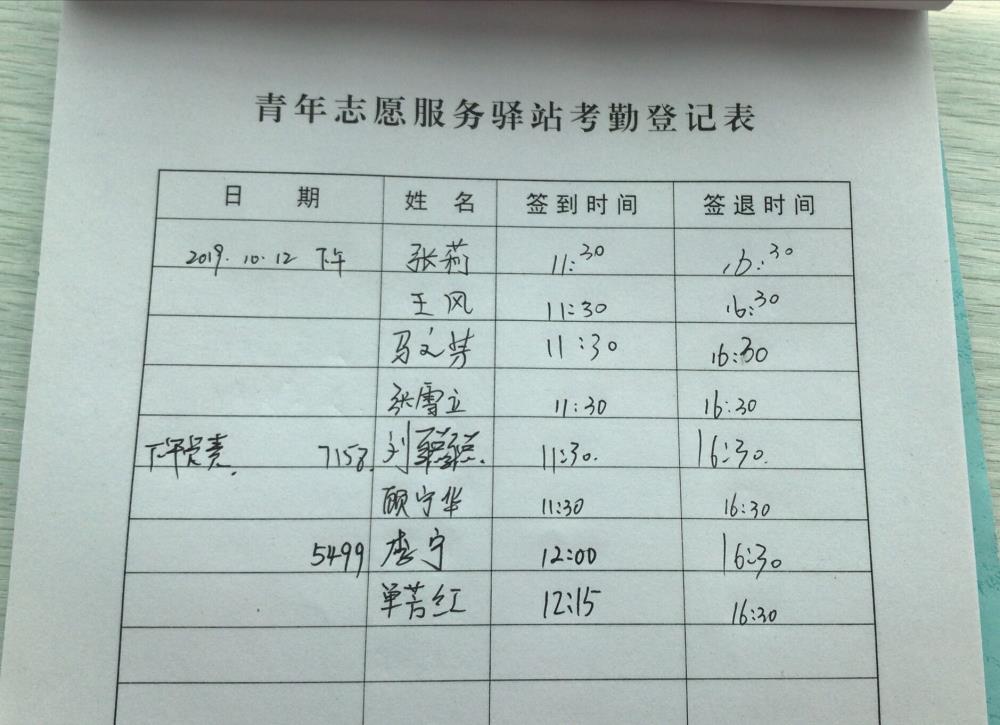 青年志愿服务驿站考勤登记表
日 期 姓 名 签到时间 签退时间
2019.10.12 下午 张莉 11:30 16:30
王风 11:30 16:30
马文芳 11:30 16:30
张雪立 11:30 16:30
下午负责. 7158. 刘聪聪. 11:30. 16:30.
顾宁华 11:30 16:30
5499 李宁 12:00 16:30
单芳红 12:15 16:30